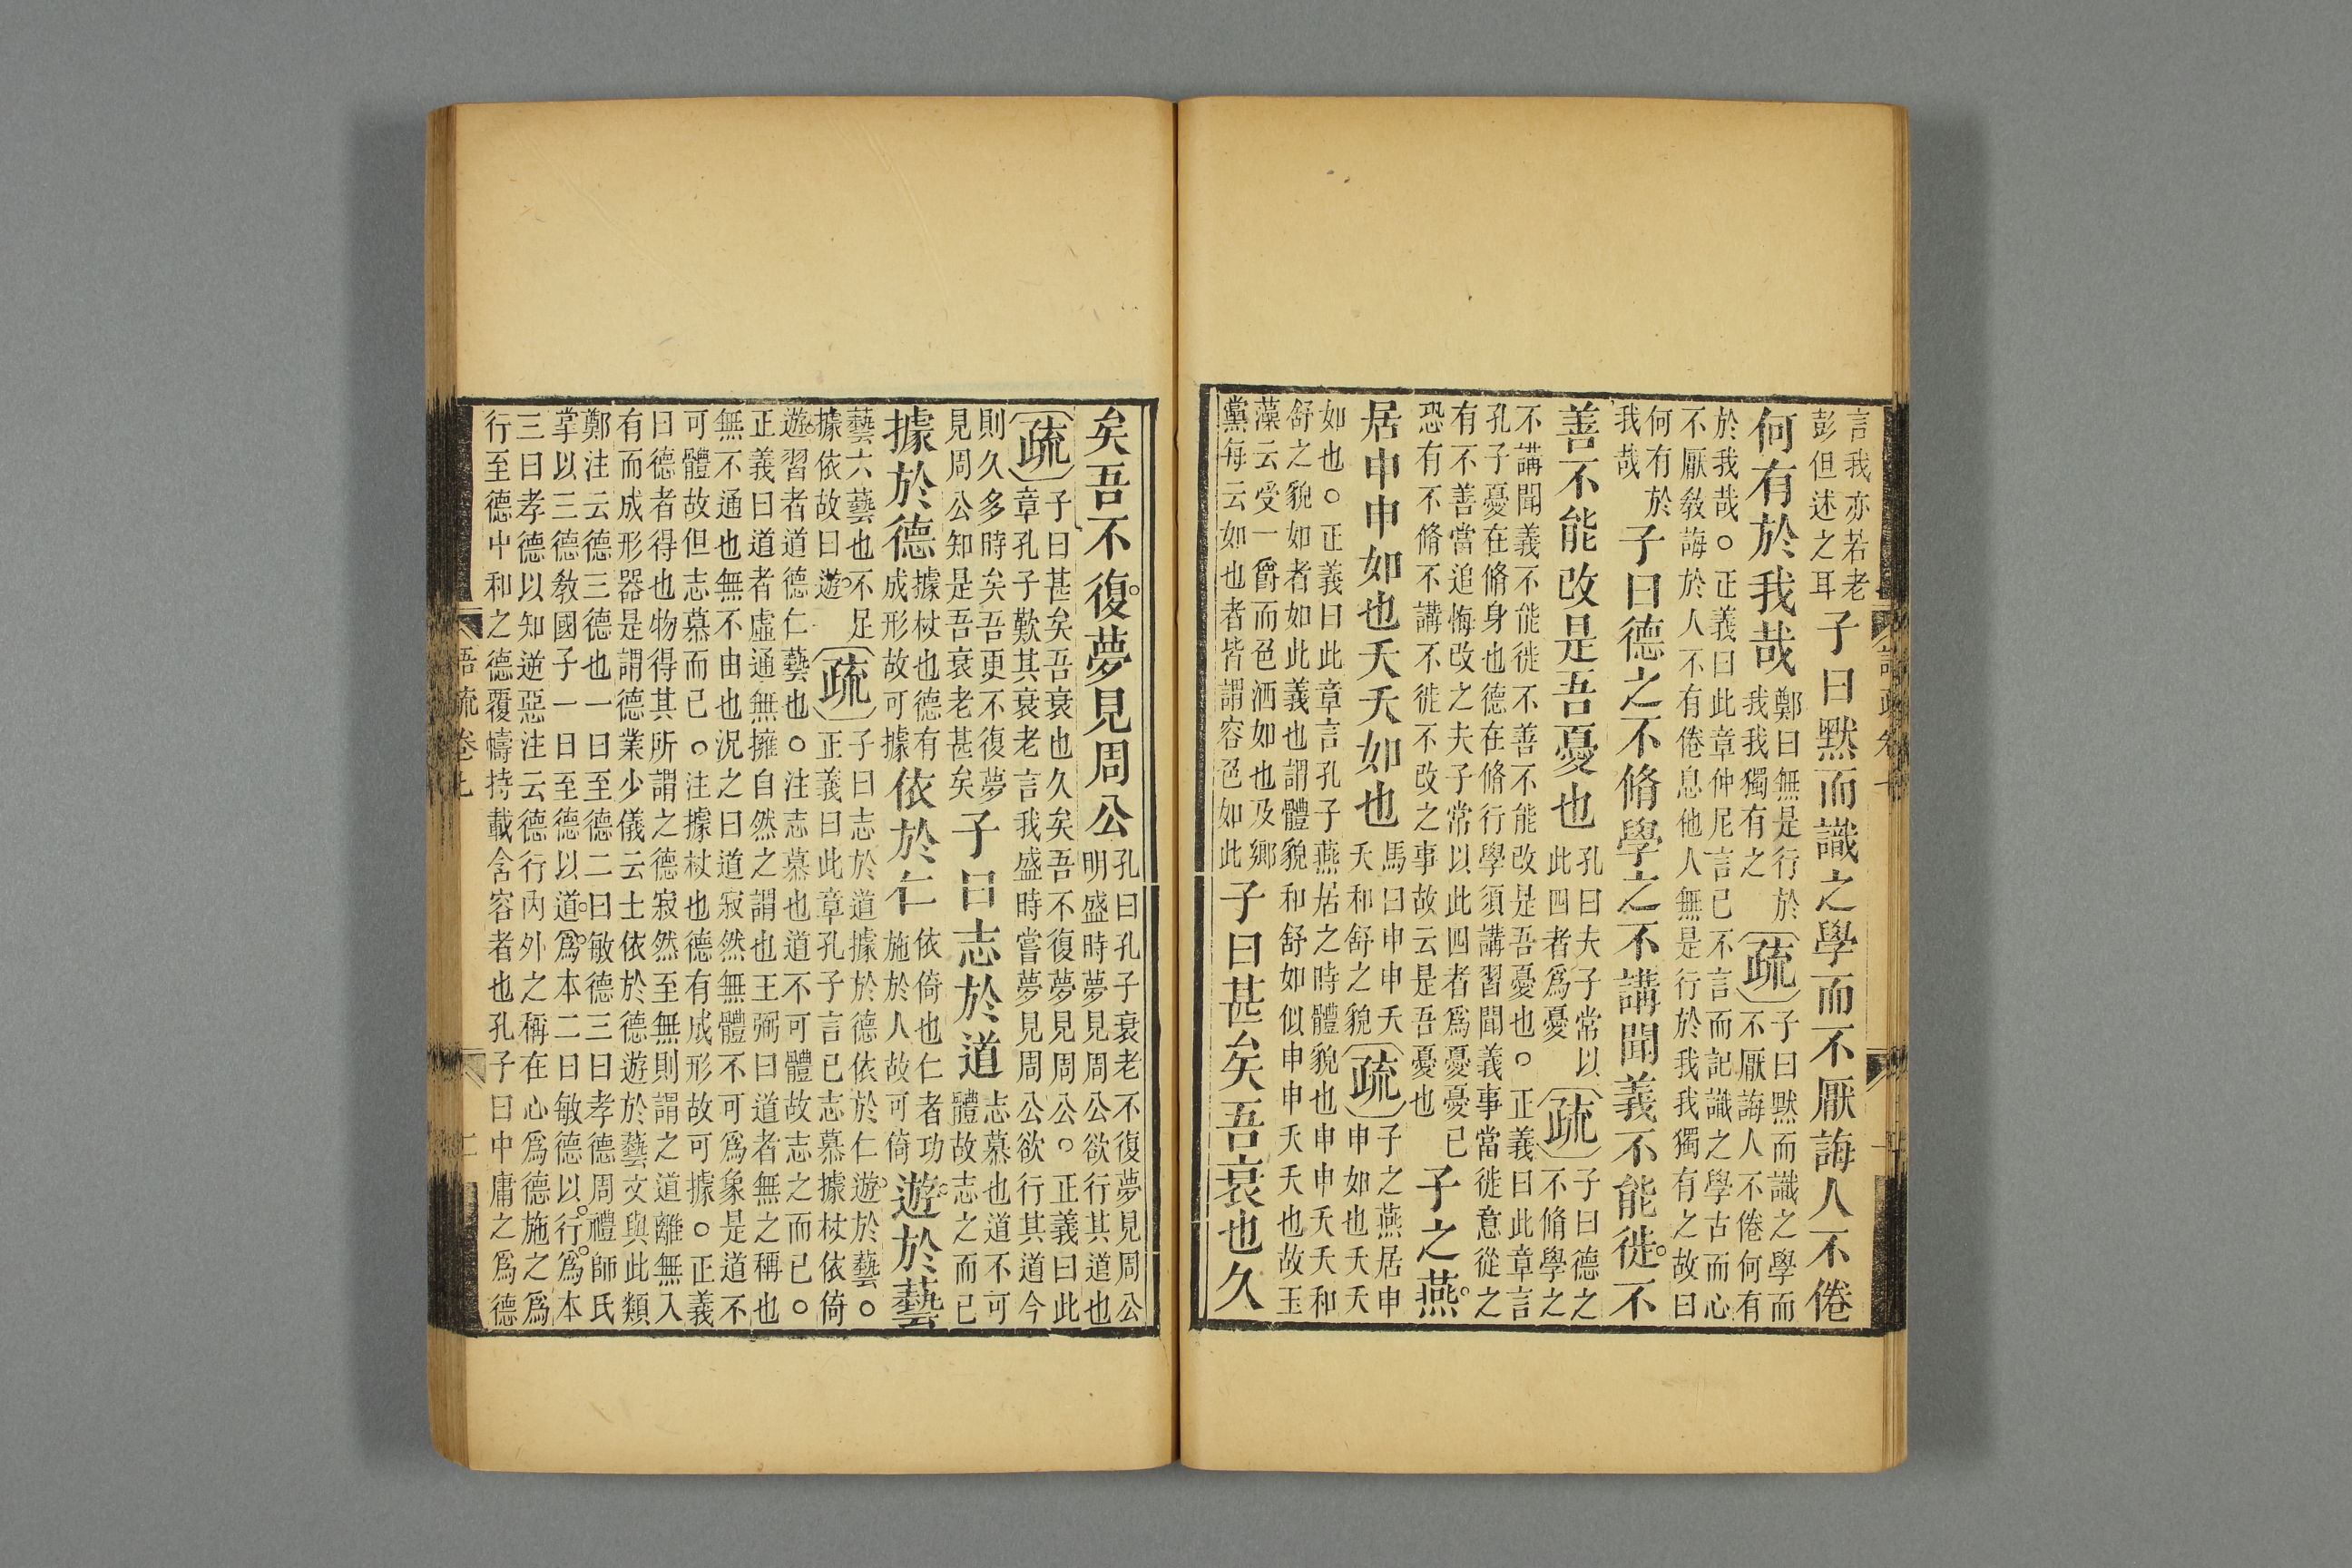 言我亦若老彭但述之耳子曰默而識之學而不厭誨人不倦
何有於我哉鄭曰無是行於我我獨有之疏子曰默而識之學而不厭誨人不倦何有
於我哉○正義曰此章仲尼言已不言而記識之學古而心
不厭教誨於人不有倦息他人無是行於我我獨有之故曰
何有於我哉子曰德之不脩學之不講聞義不能徙不
善不能改是吾憂也孔曰夫子常以此四者爲憂疏子曰德之不脩學之
不講聞義不能徙不善不能改是吾憂也○正義曰此章言
孔子憂在脩身也德在脩行學須講習聞義事當徙意從之
有不善當追悔改之夫子常以此四者爲憂憂已
恐有不脩不講不徙不改之事故云是吾憂也子之燕
居申申如也夭夭如也馬曰申申夭夭和舒之貌疏子之燕居申申如也夭夭
如也○正義曰此章言孔子燕居之時體貌也申申夭夭和
舒之貌如者如此義也謂體貌和舒如似申申夭夭也故玉
藻云受一爵而色洒如也及鄉
黨每云如也者皆謂容色如此子曰甚矣吾衰也久
矣吾不復夢見周公孔曰孔子衰老不復夢見周公明盛時夢見周公欲行其道也
疏子曰甚矣吾衰也久矣吾不復夢見周公○正義曰此
章孔子歎其衰老言我盛時嘗夢見周公欲行其道今
則久多時矣吾更不復夢
見周公知是吾衰老甚矣子曰志於道志慕也道不可體故志之而已
據於德據杖也德有成形故可據依於仁依倚也仁者功施於人故可倚遊於藝
藝六藝也不足據依故曰遊疏子曰志於道據於德依於仁遊於藝○
正義曰此章孔子言已志慕據杖依倚
遊習者道德仁藝也○注志慕也道不可體故志之而已○
正義曰道者虛通無擁自然之謂也王弼曰道者無之稱也
無不通也無不由也況之曰道寂然無體不可爲象是道不
可體故但志慕而已○注據杖也德有成形故可據○正義
曰德者得也物得其所謂之德寂然至無則謂之道離無入
有而成形器是謂德業少儀云士依於德遊於藝文與此類
鄭注云德三德也一曰至德二曰敏德三曰孝德周禮師氏
掌以三德教國子一曰至德以道爲本二曰敏德以行爲本
三曰孝德以知逆惡注云德行內外之稱在心爲德施之爲
行至德中和之德覆幬持載含容者也孔子曰中庸之爲德
語疏卷七 二